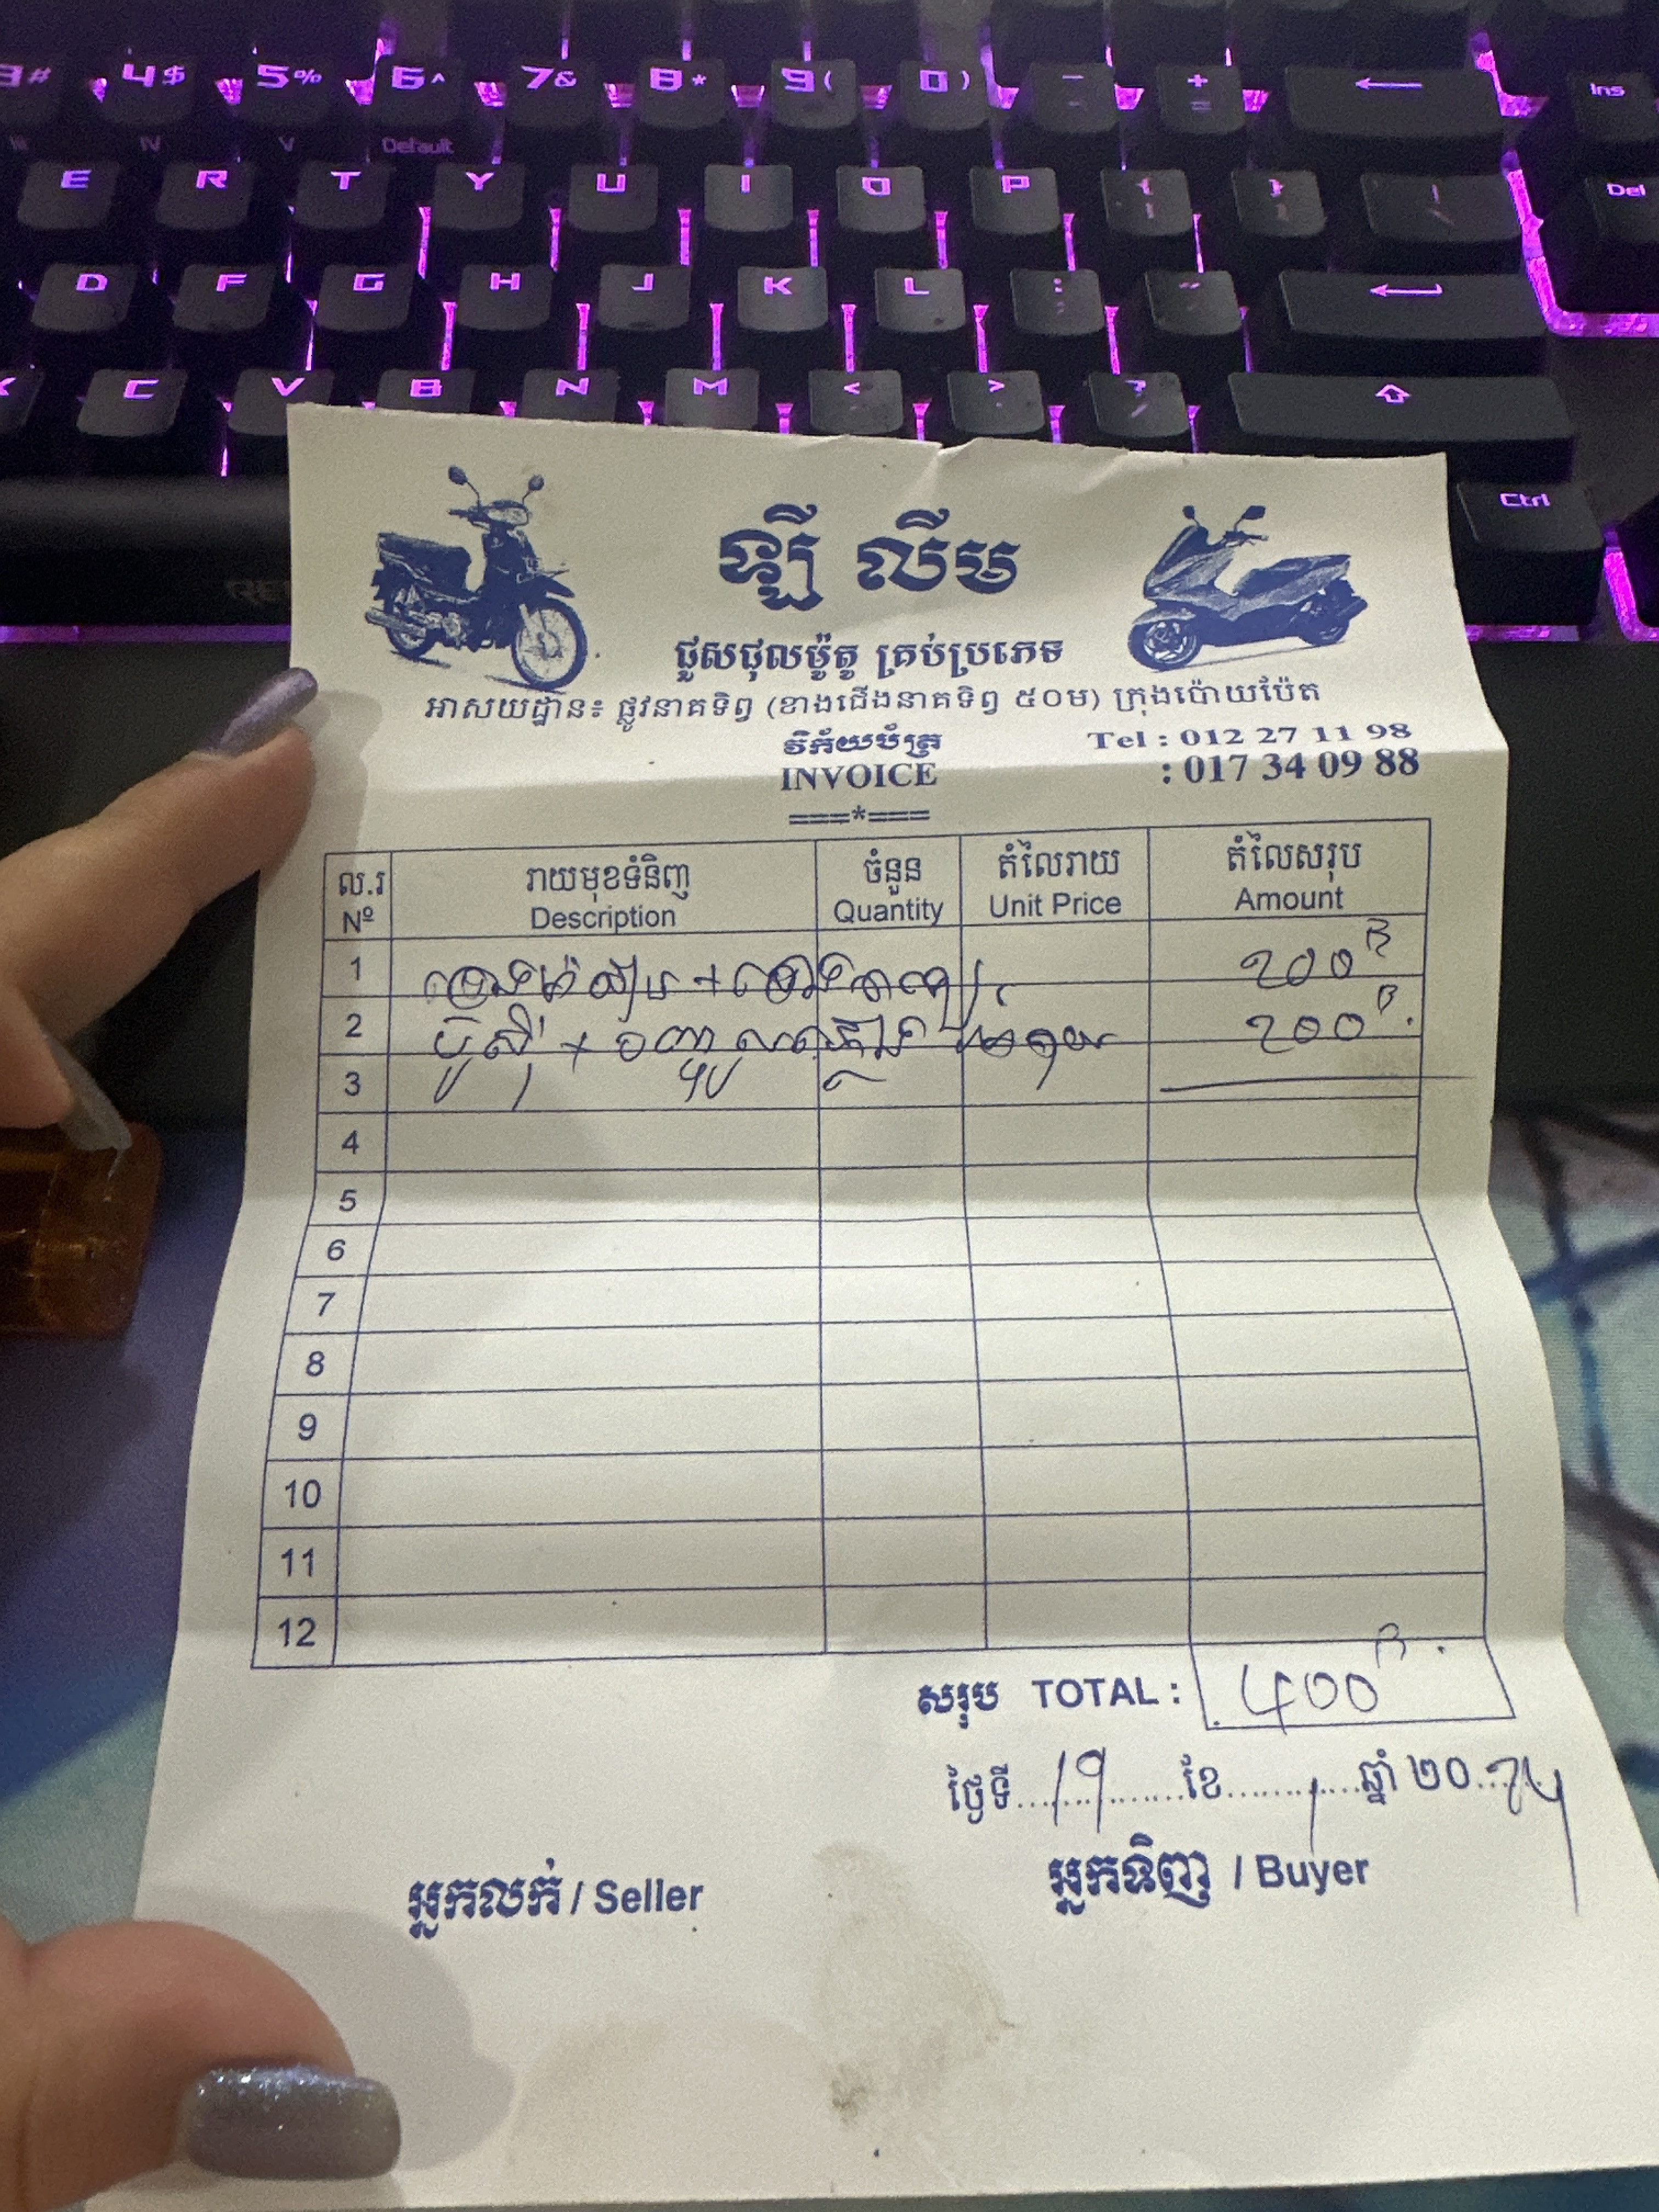 3# 4$ 5% 6^ 7& 8* 9( 0) - + = Ins
III IV V Default
E R T Y U I O P { } Del
D F G H J K L : "
C V B N M < > ?
Ctrl
ឡី លីម
ជួសជុលម៉ូតូ គ្រប់ប្រភេទ
អាសយដ្ឋាន៖ ផ្លូវនាគទិព្វ (ខាងជើងនាគទិព្វ ៥០ម) ក្រុងប៉ោយប៉ែត
វិក័យប័ត្រ Tel : 012 27 11 98
INVOICE : 017 34 09 88
===*===
ល.រ រាយមុខទំនិញ ចំនួន តំលៃរាយ តំលៃសរុប
Nº Description Quantity Unit Price Amount
1 200 B
2 ប៊ូស៊ី + 200 B
3
4
5
6
7
8
9
10
11
12
សរុប TOTAL : 400 B
ថ្ងៃទី 19 ខែ 1 ឆ្នាំ ២០ 24
អ្នកលក់ / Seller អ្នកទិញ / Buyer